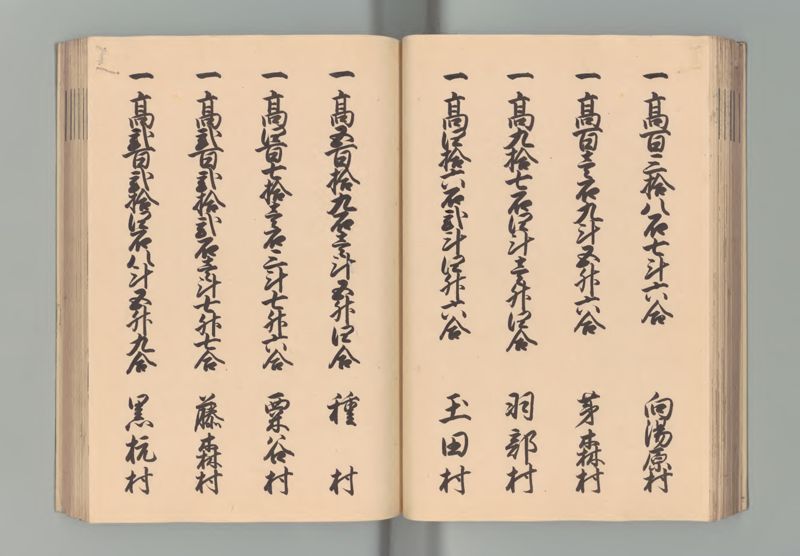 一高百二拾八石七斗六合　向湯原村
一高百壱石九斗五升六合　茅森村
一高九拾七石四斗壱升四合　羽部村
一高四拾六石弐斗四升六合　玉田村
一高五百拾九石壱斗五升四合　種村
一高四百七拾壱石三斗七升六合　粟谷村
一高弐百弐拾弐石壱斗七升七合　藤森村
一高弐百弐拾四石八斗五升九合　黒杭村